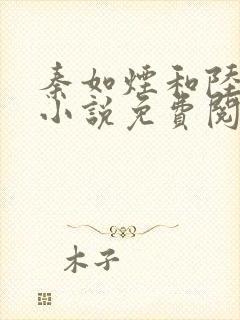 秦如煙和陸
小說免費閱
木子